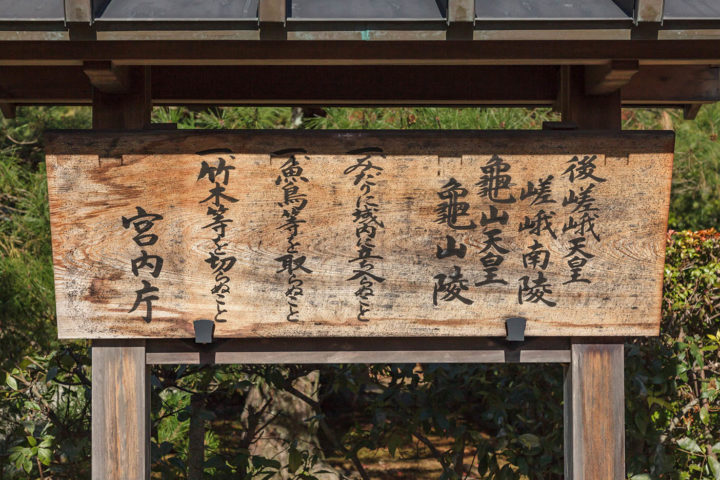 後嵯峨天皇
嵯峨南陵
龜山天皇
龜山陵
一、みだりに域内に立ち入らぬこと
一、魚鳥等を取らぬこと
一、竹木等を切らぬこと
宮内庁